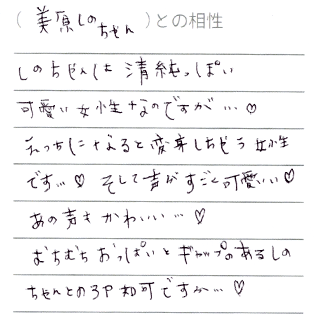 (美原しのちゃん)との相性
しのちゃんは清純っぽい
可愛い女性なのですが…♡
えっちになると変身しちゃう女性
です…♡ そして声がすごく可愛い♡
あの声もかわいい…♡
むちむちおっぱいとギャップのあるしの
ちゃんとの3P
ですか…♡